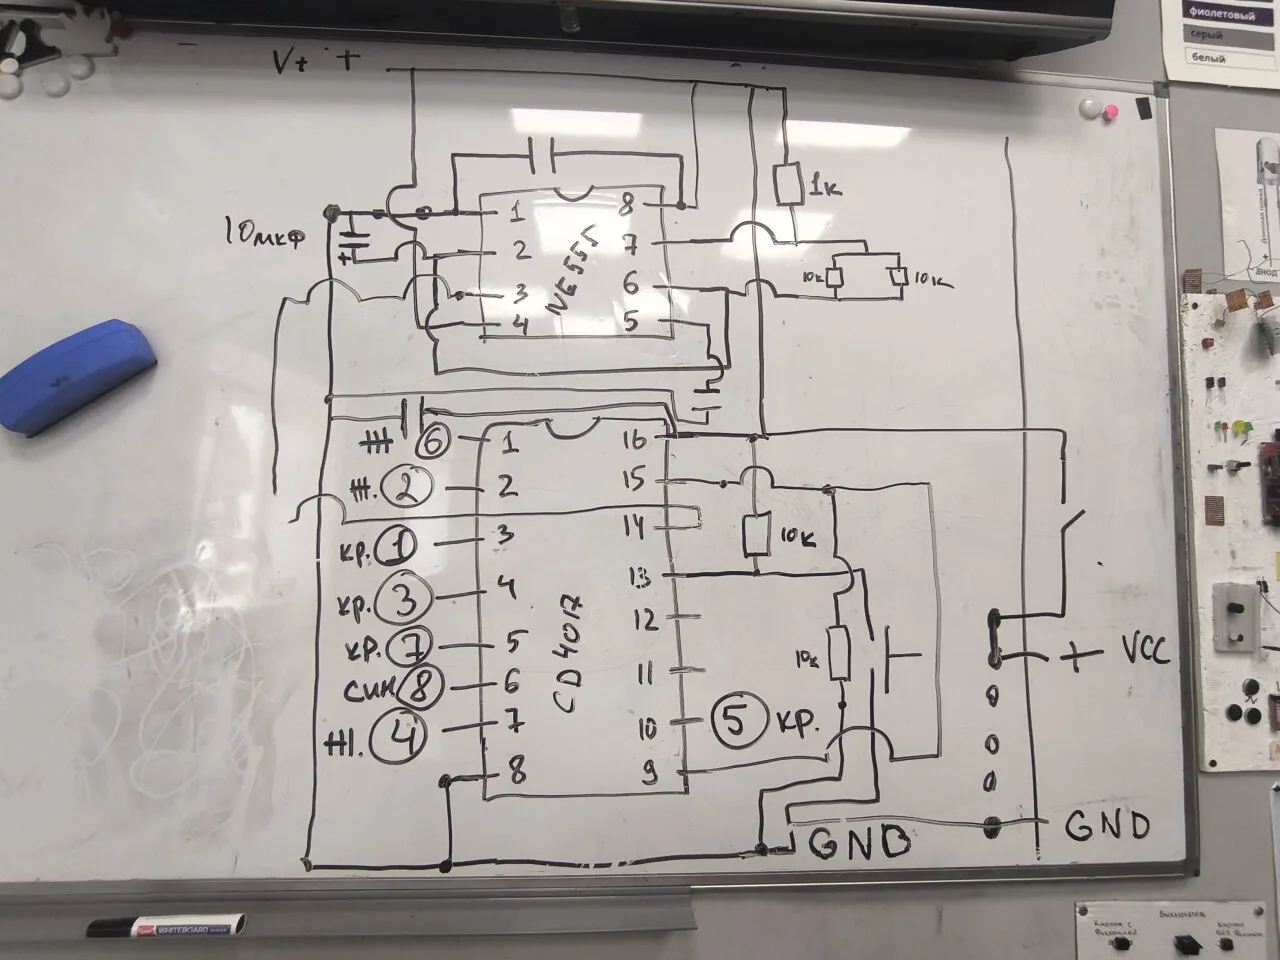 фиолетовый
серый
белый
V+ +
1
8
1к
10мкф
2
7
NE555
3
6
10к
10к
+
4
5
Ж 6
1
16
Ж. 2
2
15
14
10к
кр. 1
3
13
кр. 3
4
12
CD4017
кр. 7
5
11
10к
+ VCC
син 8
6
Ж. 4
7
10
5 кр.
8
9
GND
GND
WHITEBOARD
Кнопка с
Фиксацией
Выключатель
Кнопка